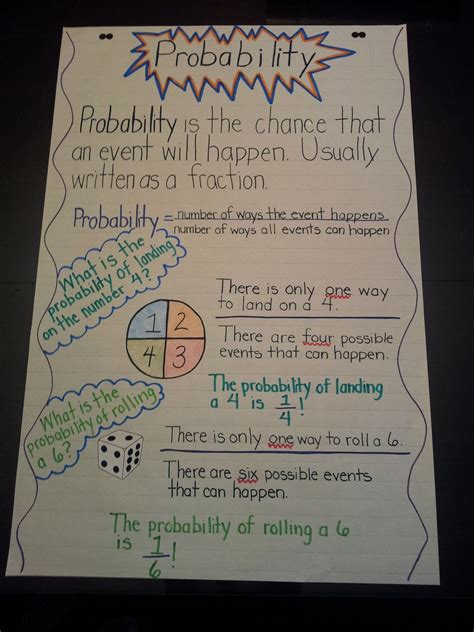 Probability
Probability is the chance that
an event will happen. Usually
written as a fraction.
Probability = number of ways the event happens
number of ways all events can happen
What is the
probability of landing
on the number 4?
There is only one way
to land on a 4.
1 2
4 3
There are four possible
events that can happen.
The probability of landing
a 4 is 1/4!
What is the
probability of rolling
a 6?
There is only one way to roll a 6.
There are six possible events
that can happen.
The probability of rolling a 6
is 1/6!